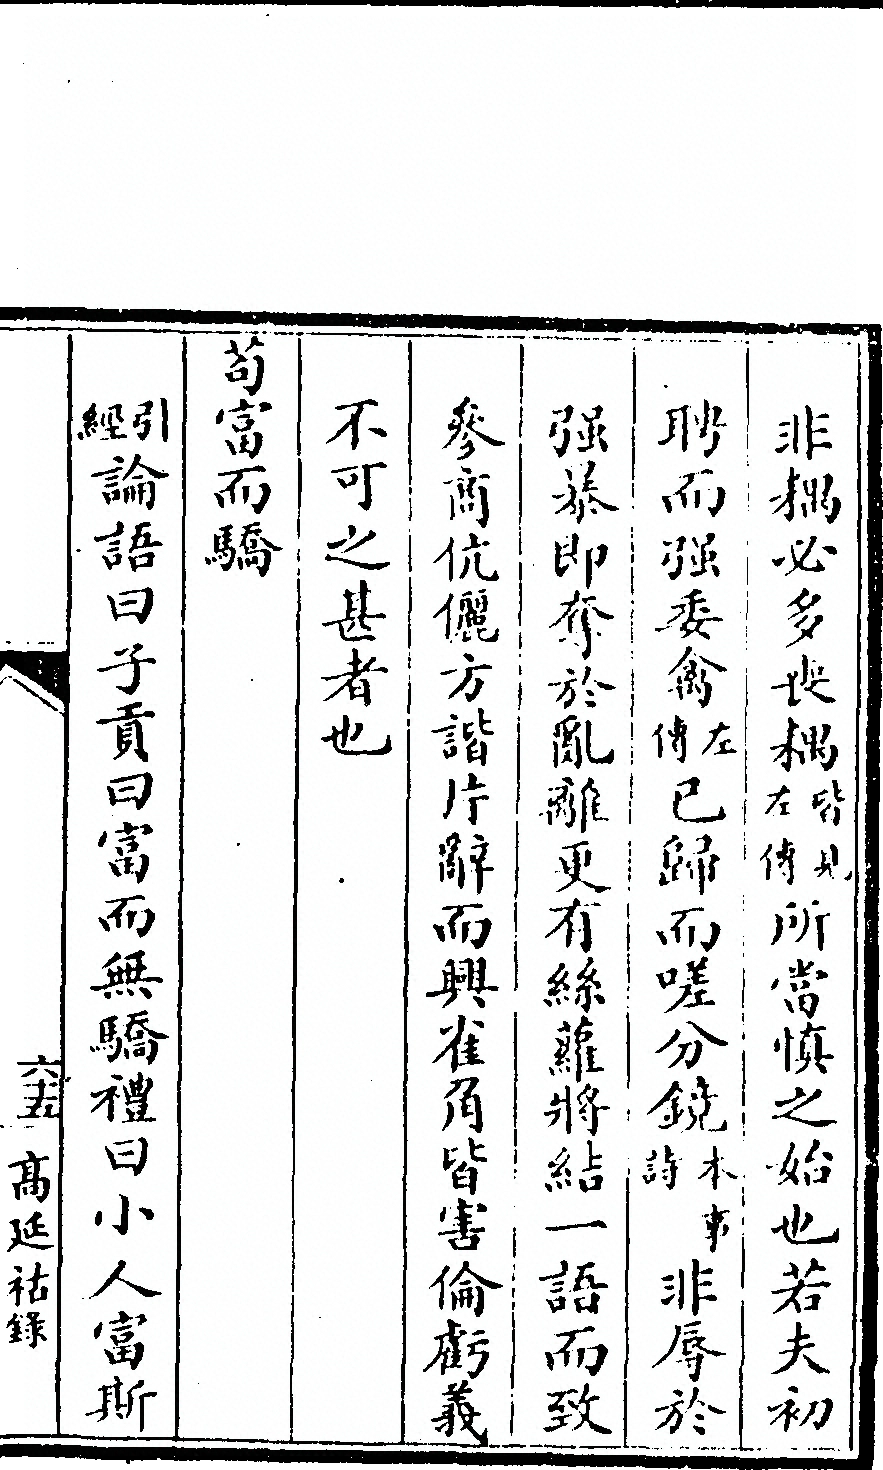 非耦必多喪耦皆見左傳所當慎之始也若夫初
聘而强委禽左傳已歸而嗟分鏡本事詩非辱於
强暴即奪於亂離更有絲蘿將結一語而致
參商伉儷方諧片辭而興雀角皆害倫虧義
不可之甚者也
苟富而驕
引經論語曰子貢曰富而無驕禮曰小人富斯
六五
高延祜錄